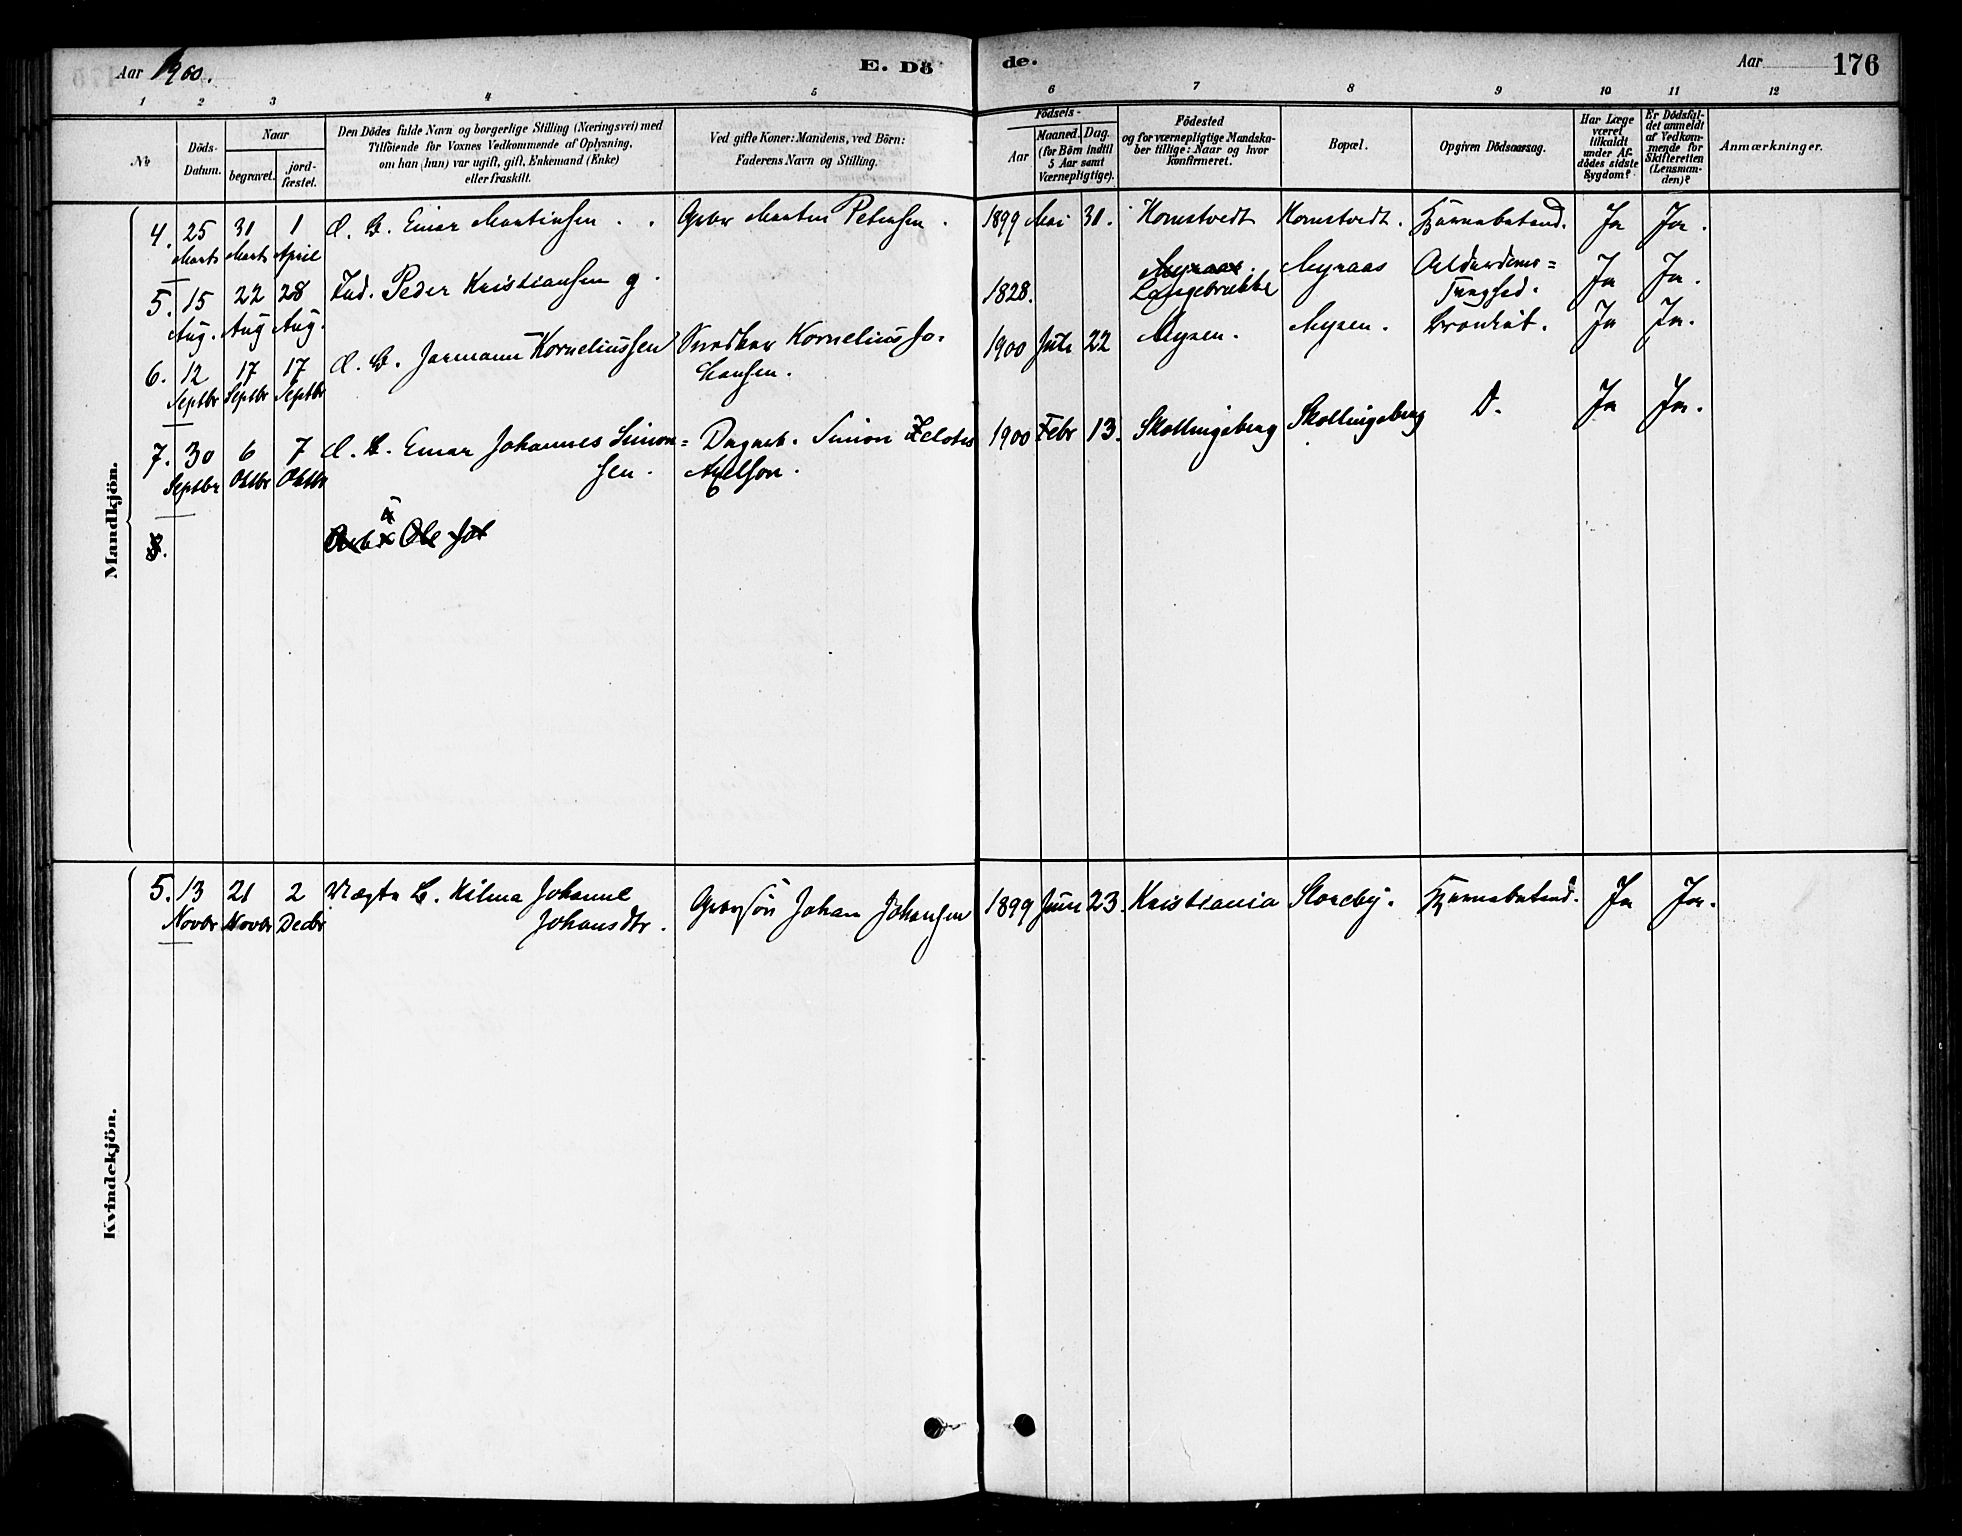 Aar 1900.
E. Dö
de.
Aar
176
1 2 3 4 5 6 7 8 9 10 11 12
No
Döds-
Datum.
Naar
begravet.
jord-
fæstet.
Den Dödes fulde Navn og borgerlige Stilling (Næringsvei) med
Tilföiende for Voxnes Vedkommende af Oplysning,
om han (hun) var ugift, gift, Enkemand (Enke)
eller fraskilt.
Ved gifte Koner: Mandens, ved Börn:
Faderens Navn og Stilling.
Födsels-
Aar
Maaned. Dag.
(for Börn indtil
5 Aar samt
Værnepligtige).
Födested
og for værnepligtige Mandska-
ber tillige: Naar og hvor
konfirmeret.
Bopæl.
Opgiven Dödsaarsag.
Har Læge
været
tilkaldt
under Af-
dödes sidste
Sygdom?
Er Dödsfal-
det anmeldt
af Vedkom-
mende for
Skifteretten
(Lensman-
den)?
Anmærkninger.
Mandkjön.
4. 25 31 1 Einar Martinsen . . Martin Petersen . 1899 Mai 31. Homstvedt Homstvedt. Ja Ja.
Marts Marts April
5. 15 22 28 Ind. Peder Kristiansen g. 1828. Myraas Myraas Alderdoms= Ja Ja.
Aug. Aug Aug. Langebrække Svaghed.
6. 12 17 17 Jermann Korneliussen Snedker Kornelius Jo- 1900 Juli 22 Mysen. Mysen. Bronkit. Ja Ja.
Septbr Septbr Septbr hansen.
7. 30 6 7 Einar Johannes Simon= Dagarb. Simon Zelotes 1900 Febr 13. Skollingsberg Skollingsberg D. Ja Ja.
Septbr Oktbr Oktbr sen. Axelson.
8. Ole
Kvindekjön.
5. 13 21 2 Hilma Johanne Johan Johansen 1899 Juni 23. Kristiania Storeby. Ja Ja.
Novbr Novbr Decbr Johansdtr.